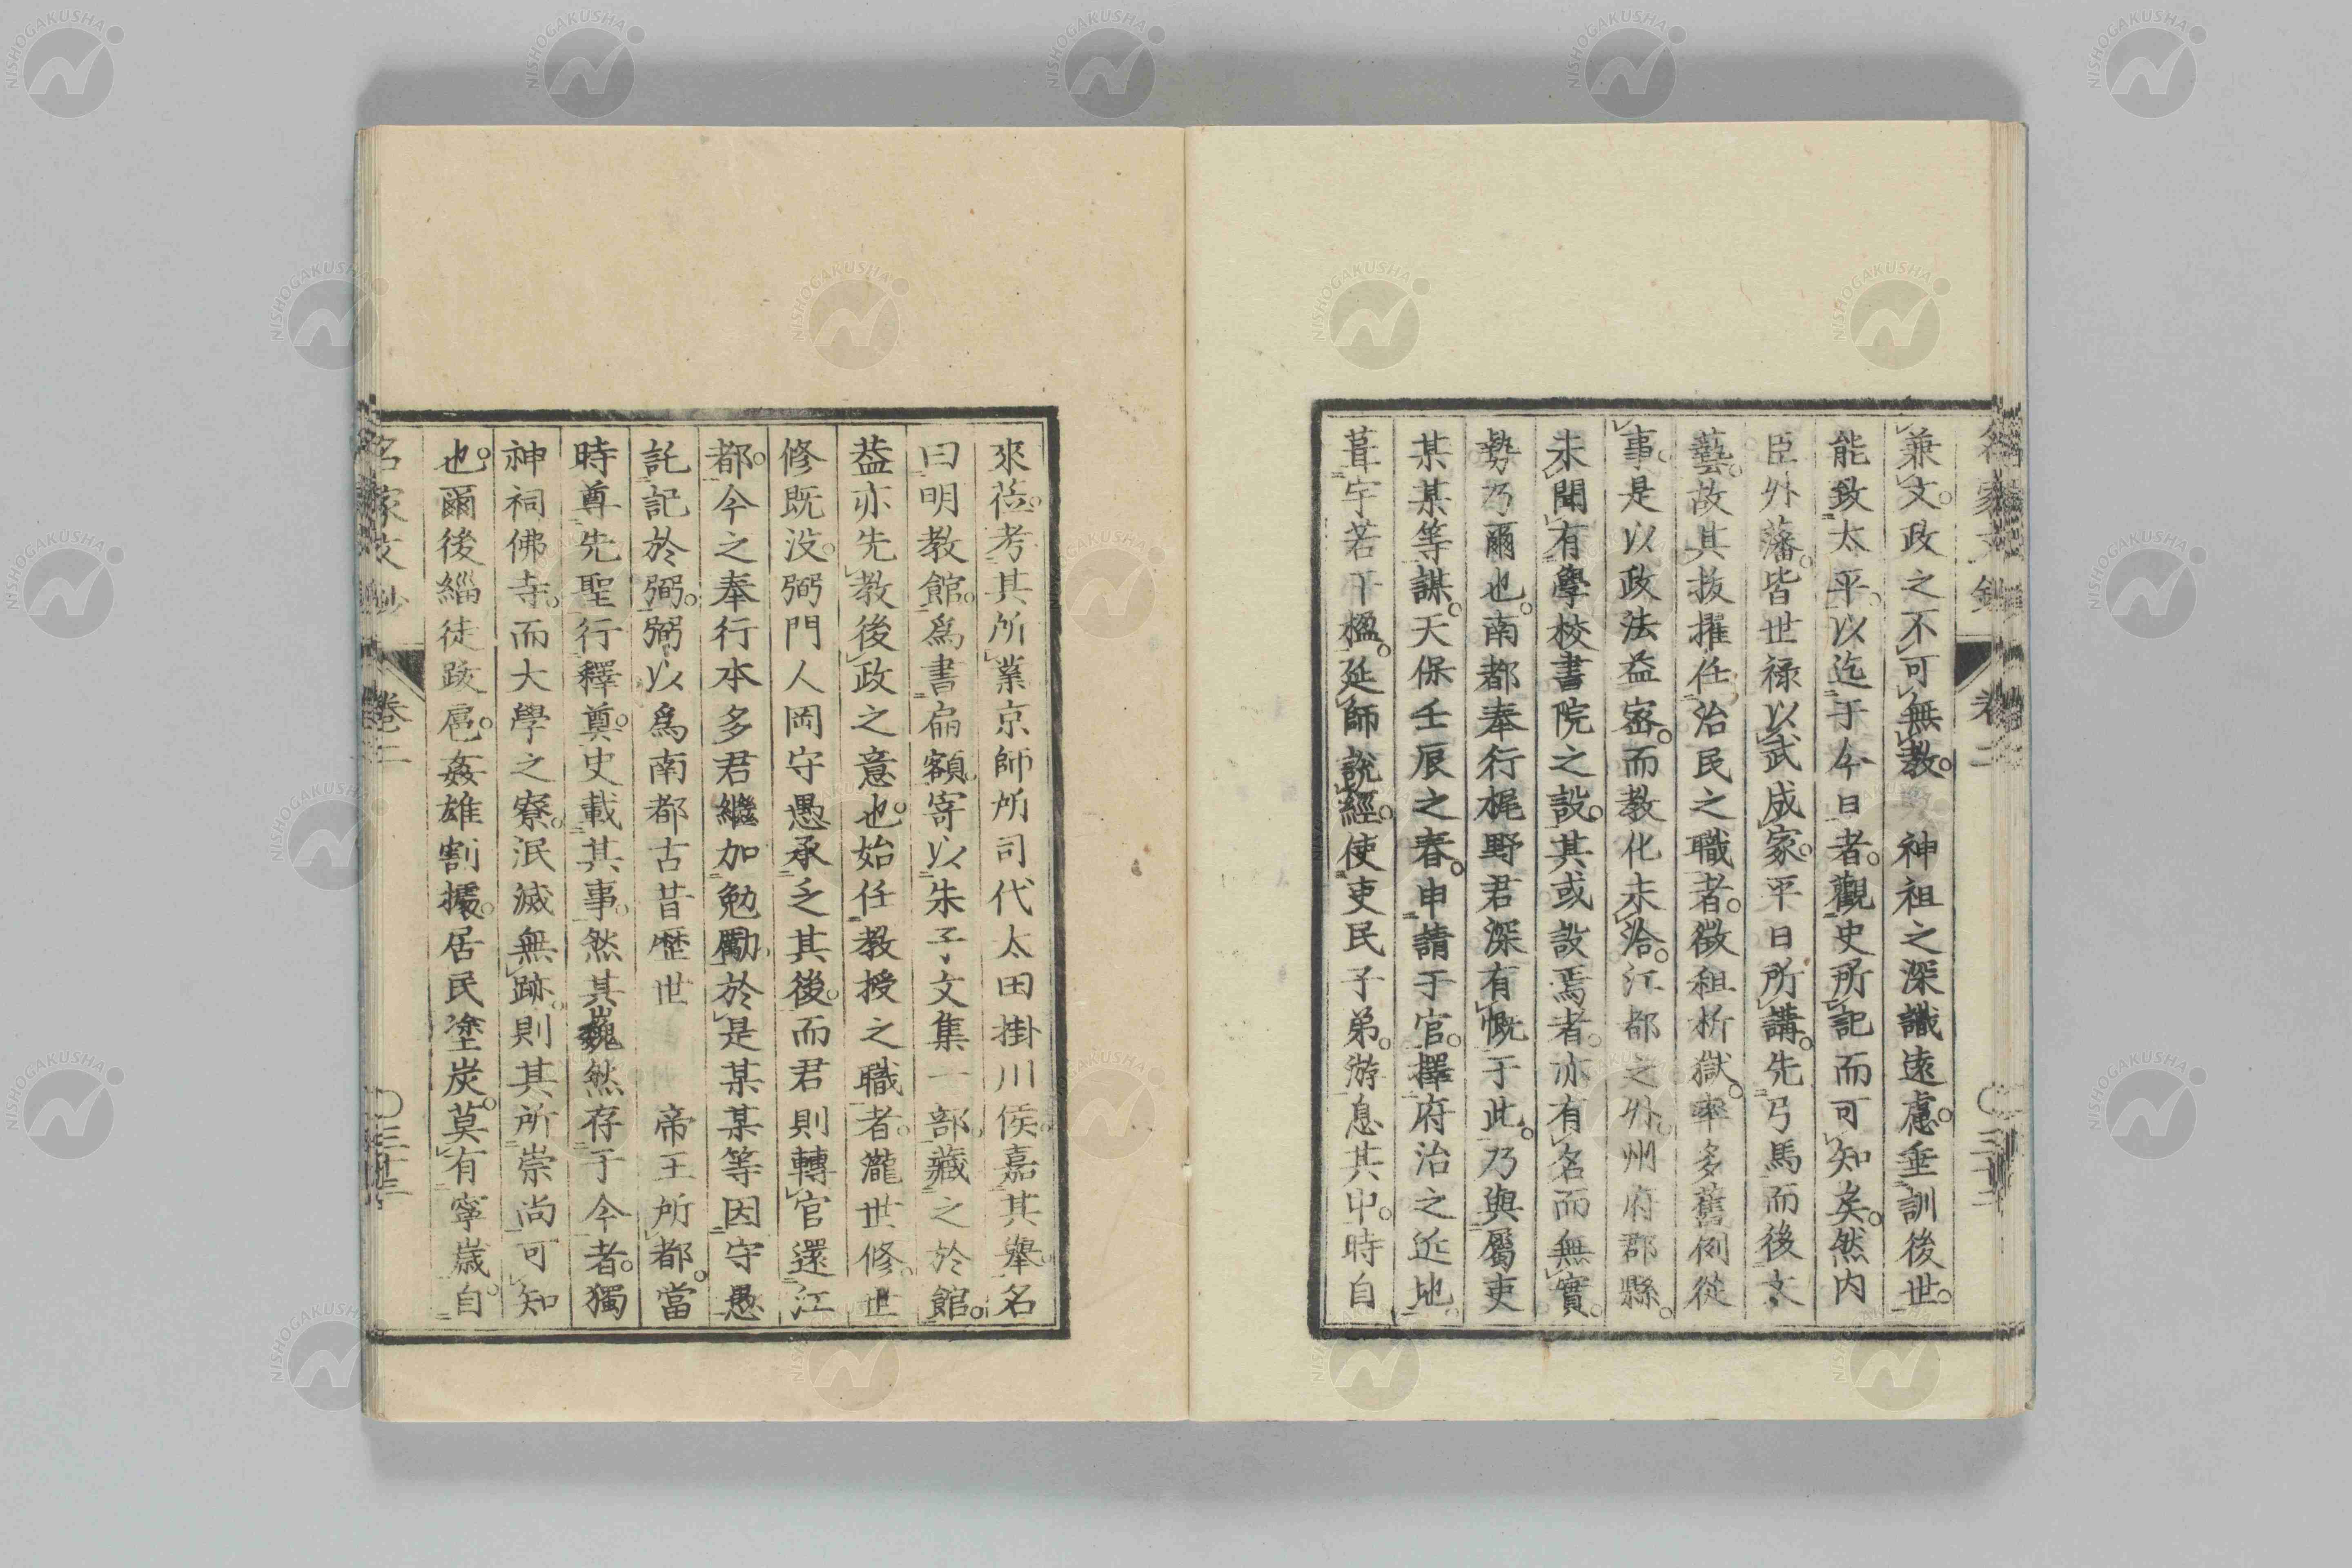 兼文政之不可無教。神祖之深識遠慮。垂訓後世。
能致太平。以迄于今日者。觀史所記而可知矣。然内
臣外藩。皆世禄以武成家。平日所講。先弓馬而後文
藝。故其抜擢任治民之職者。徴租折獄。率多舊例從
事。是以政法益密。而教化未洽。江都之外。州府郡縣。
未聞有學校書院之設。其或設焉者。亦有名而無實。
勢乃爾也。南都奉行梶野君深有慨于此。乃與屬吏
某某等謀。天保壬辰之春。申請于官。擇府治之近地。
葺宇若干楹。延師説經。使吏民子弟。游息其中。時自
來莅。考其所業京師所司代太田掛川侯。嘉其舉。名
曰明教館。爲書扁額。寄以朱子文集一部。藏之於館。
葢亦先教後政之意也。始任教授之職者。瀧世修。世
修既没。弼門人岡守愚承乏其後。而君則轉官還江
都。今之奉行本多君繼加勉勵。於是某某等因守愚
託記於弼。弼以爲南都古昔歴世　帝王所都。當
時尊先聖行釋奠。史載其事。然其巍然存于今者。獨
神祠佛寺。而大學之寮。泯滅無跡。則其所崇尚可知
也。爾後緇徒跋扈。姦雄割據。居民塗炭。莫有寧歳。自
名家文抄
卷二